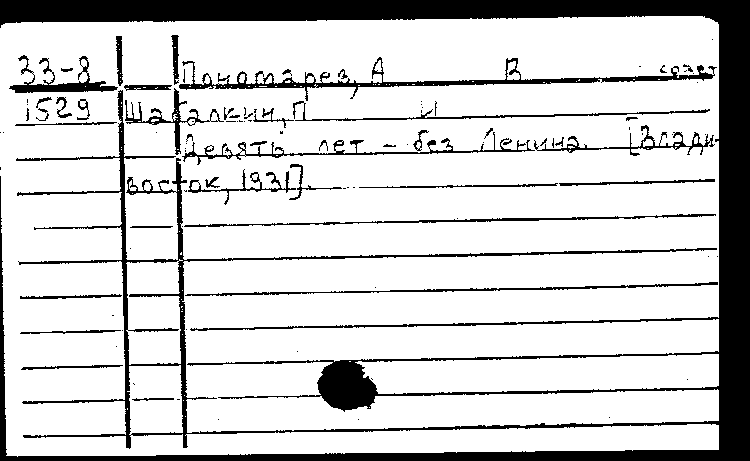 33-8 Пономарев, А В соавт
1529 Шабалкин, П И
Девять лет - без Ленина. [Влади-
восток, 1931].